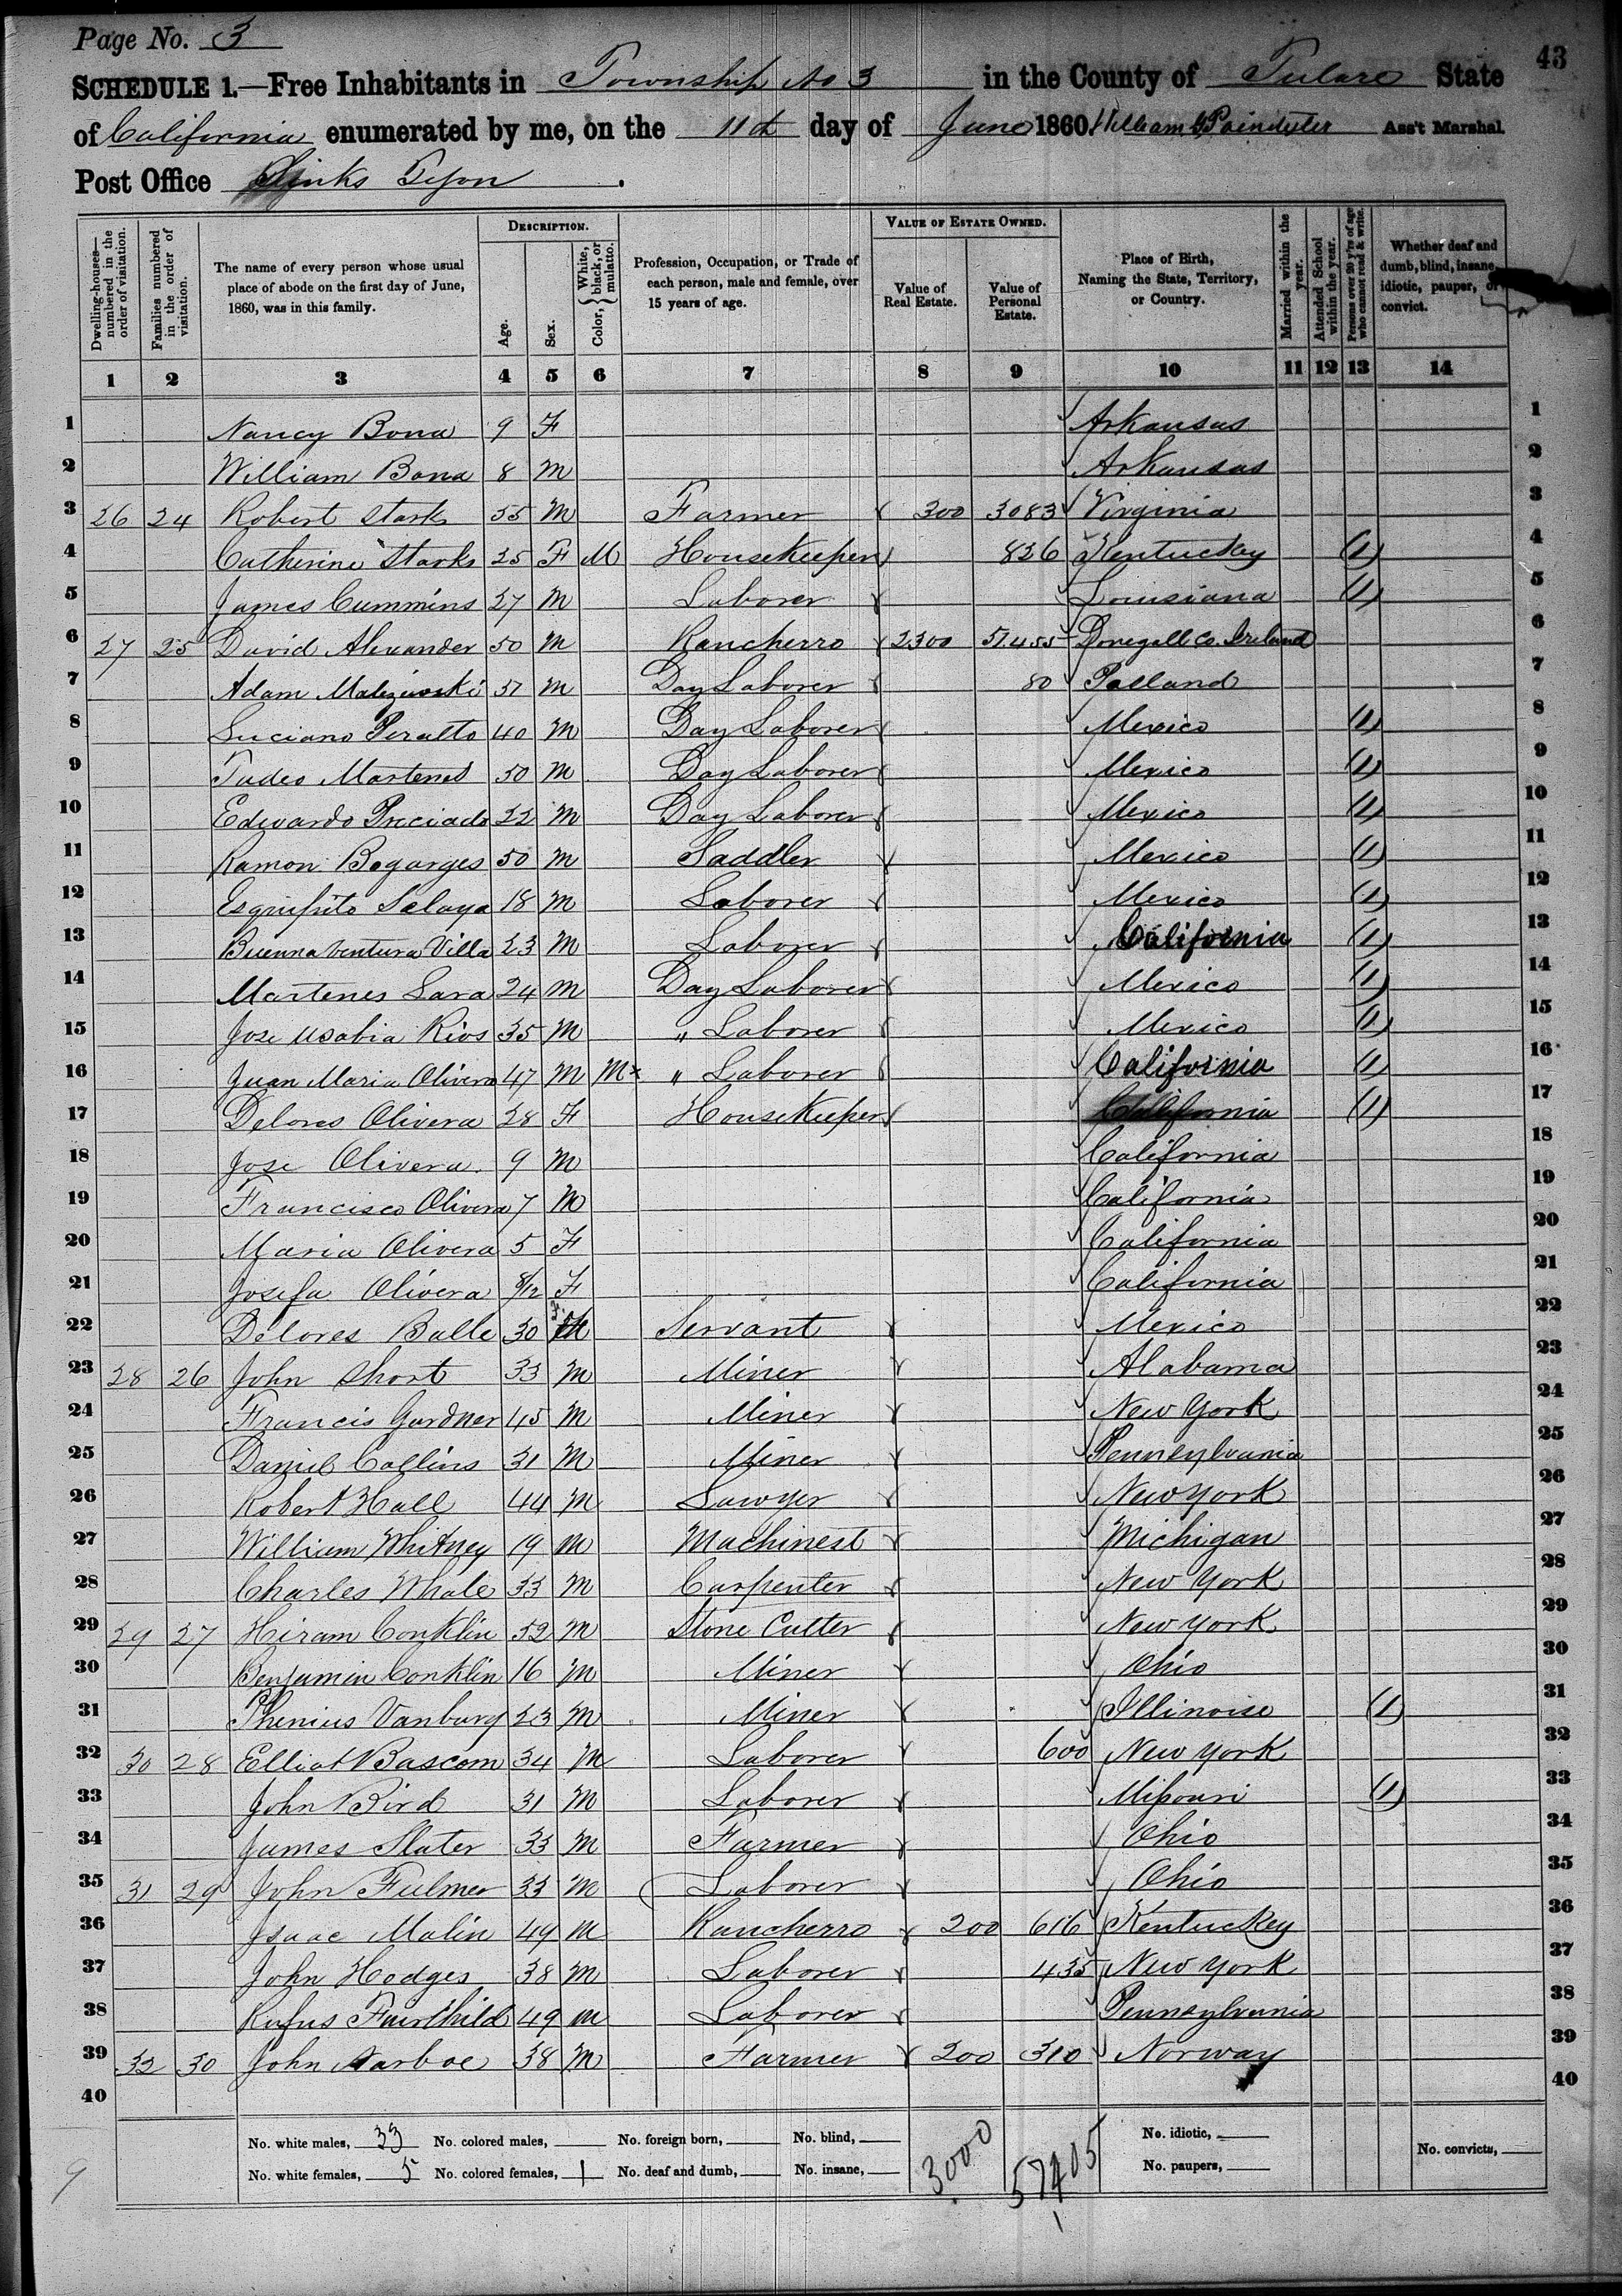 Page No. 3
43
SCHEDULE 1.—Free Inhabitants in Township No 3 in the County of Tulare State
of California enumerated by me, on the 11th day of June 1860. William G Poindexter Ass't Marshal.
Post Office Sinks Tejon.
Dwelling-houses—numbered in the order of visitation.
Families numbered in the order of visitation.
The name of every person whose usual place of abode on the first day of June, 1860, was in this family.
DESCRIPTION.
Age.
Sex.
Color, { White, black, or mulatto.
Profession, Occupation, or Trade of each person, male and female, over 15 years of age.
VALUE OF ESTATE OWNED.
Value of Real Estate.
Value of Personal Estate.
Place of Birth, Naming the State, Territory, or Country.
Married within the year.
Attended School within the year.
Persons over 20 y'rs of age who cannot read & write.
Whether deaf and dumb, blind, insane, idiotic, pauper, or convict.
1 2 3 4 5 6 7 8 9 10 11 12 13 14
1 Nancy Bona 9 F Arkansas 1
2 William Bona 8 M Arkansas 2
3 26 24 Robert Stark 55 M Farmer 300 3083 Virginia 3
4 Catherine Starks 25 F M Housekeeper 826 Kentucky (1) 4
5 James Cummins 27 M Laborer Louisiana (1) 5
6 27 25 David Alexander 50 M Rancherro 2300 51.455 Donegall Co. Ireland 6
7 Adam 51 M Day Laborer 80 Polland 7
8 Luciano Peralto 40 M Day Laborer Mexico (1) 8
9 Tadeo Martenes 50 M Day Laborer Mexico (1) 9
10 Edwardo Preciado 22 M Day Laborer Mexico (1) 10
11 Ramon Bogarges 50 M Saddler Mexico (1) 11
12 Esquipito Selaya 18 M Laborer Mexico (1) 12
13 Buenna ventura Villa 23 M Laborer California (1) 13
14 Martenes Lara 24 M Day Laborer Mexico (1) 14
15 Jose usabia Rios 35 M " Laborer Mexico (1) 15
16 Juan Maria Olivera 47 M Mx " Laborer California (1) 16
17 Delores Olivera 28 F Housekeeper California (1) 17
18 Jose Olivera. 9 M California 18
19 Francisco Olivera 7 M California 19
20 Maria Olivera 5 F California 20
21 Josefa Olivera 8/12 F California 21
22 Delores Balle 30 F Servant Mexico 22
23 28 26 John Short 33 M Miner Alabama 23
24 Francis Gardner 45 M Miner New York 24
25 Daniel Collins 31 M Miner Pennsylvania 25
26 Robert Hall 44 M Lawyer New York 26
27 William Whitney 19 M Machinest Michigan 27
28 Charles Whale 33 M Carpenter New York 28
29 29 27 Hiram Conklin 52 M Stone Cutter New York 29
30 Benjamin Conklin 16 M Miner Ohio 30
31 Phenius Vanburg 23 M Miner Illinoise (1) 31
32 30 28 Elliot Bascom 34 M Laborer 600 New York 32
33 John Bird 31 M Laborer Missouri (1) 33
34 James Slater 33 M Farmer Ohio 34
35 31 29 John Fulmer 33 M Laborer Ohio 35
36 Isaac Malin 49 M Rancherro 200 616 Kentuckey 36
37 John Hodges 38 M Laborer 435 New York 37
38 Rufus Fairchild 49 M Laborer Pennsylvania 38
39 32 30 John 38 M Farmer 200 310 Norway 39
40 40
No. white males, 33 No. colored males, No. foreign born, No. blind, 3000 57405 No. idiotic, No. convicts,
No. white females, 5 No. colored females, 1 No. deaf and dumb, No. insane, No. paupers,
9